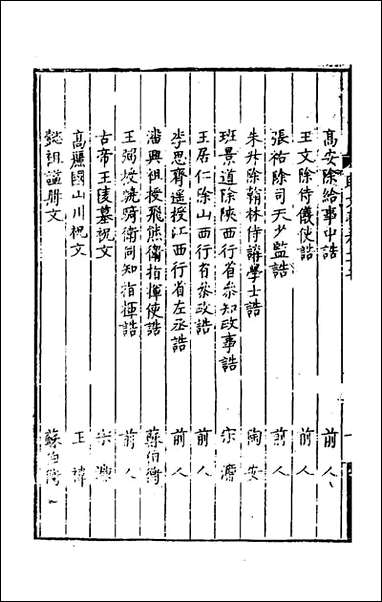 高安除給事中誥 前人
王文除侍儀使誥 前人
張祐除司天少監誥 前人
朱升除翰林侍講學士誥 陶安
班景道除陝西行省叅知政事誥 宋濂
王居仁除山西行省叅政誥 前人
李思齊遥授江西行省左丞誥 前人
潘興祖授飛熊衛指揮使誥 蘇伯衡
王弼授驍騎衛同知指揮誥 前人
古帝王陵墓祝文 宋濂
高麗國山川祝文 王禕
懿祖謚冊文 蘇伯衡